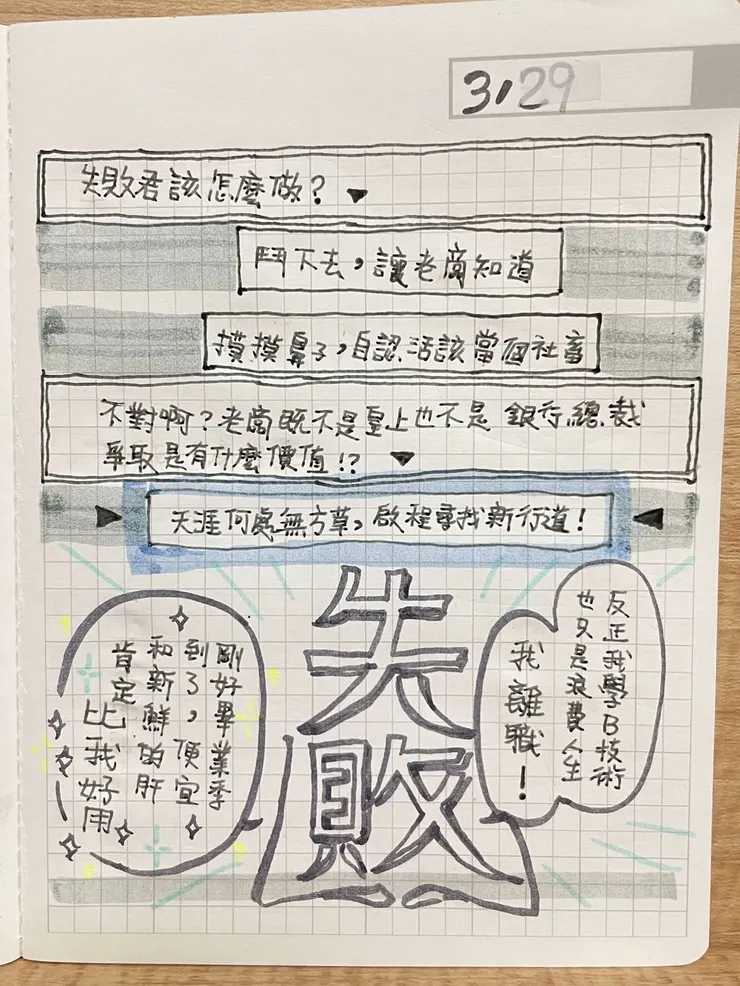 3,29
失敗君該怎麼做?
鬥下去,讓老闆知道
摸摸鼻子,自認活該當個社畜
不對啊?老闆既不是皇上也不是 銀行總裁
爭取是有什麼價值!?
天涯何處無方草,啟程尋找新行道!
反正我學B技術
也只是浪費人生
我離職!
失敗
剛好畢業季
到了,便宜
和新鮮的肝
肯定
比我好用